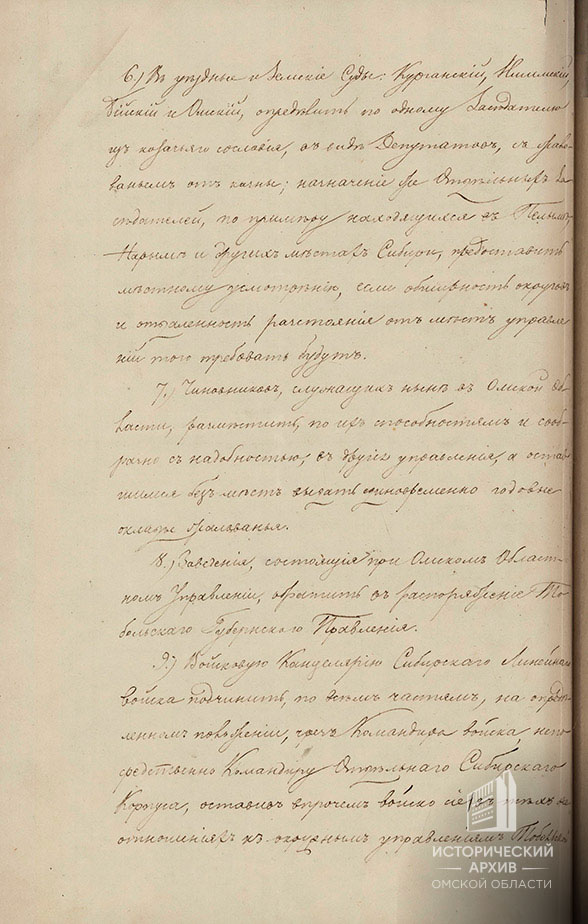 6.) Въ уѣздные и Земскіе Суды: Курганскій, Ишимскій,
Бійскій и Омскій, опредѣлить по одному Засѣдателю
изъ козачьяго сословія, въ видѣ Депутатовъ, съ жало-
ваньемъ отъ казны; назначеніе же Отдѣльныхъ За-
сѣдателей, по примѣру находящихся въ Пелымѣ,
Нарымѣ и другихъ мѣстахъ Сибири, предоставить
мѣстному усмотрѣнію, если обширность округовъ
и отдаленность разстоянія отъ мѣстъ управле-
ній того требовать будутъ.
7.) Чиновниковъ, служащихъ нынѣ въ Омской Об-
ласти, размѣстить, по ихъ способностямъ и сооб-
разно съ надобностью, въ другія управленія, а остав-
шимся безъ мѣстъ выдать единовременно годовые
оклады жалованья.
8.) Заведенія, состоящія при Омскомъ Област-
номъ Управленіи, обратить въ распоряженіе То-
больскаго Губернскаго Правленія.
9.) Войсковую Канцелярію Сибирскаго Линейнаго
войска подчинить, по всѣмъ частямъ, на опредѣ-
ленномъ положеніи, чрезъ Командира войска, непо-
средственно Командиру Отдѣльнаго Сибирскаго
Корпуса, оставивъ впрочемъ войско сіе въ тѣхъ же
отношеніяхъ къ окружнымъ управленіямъ
ИСТОРИЧЕСКИЙ
АРХИВ
ОМСКОЙ ОБЛАСТИ